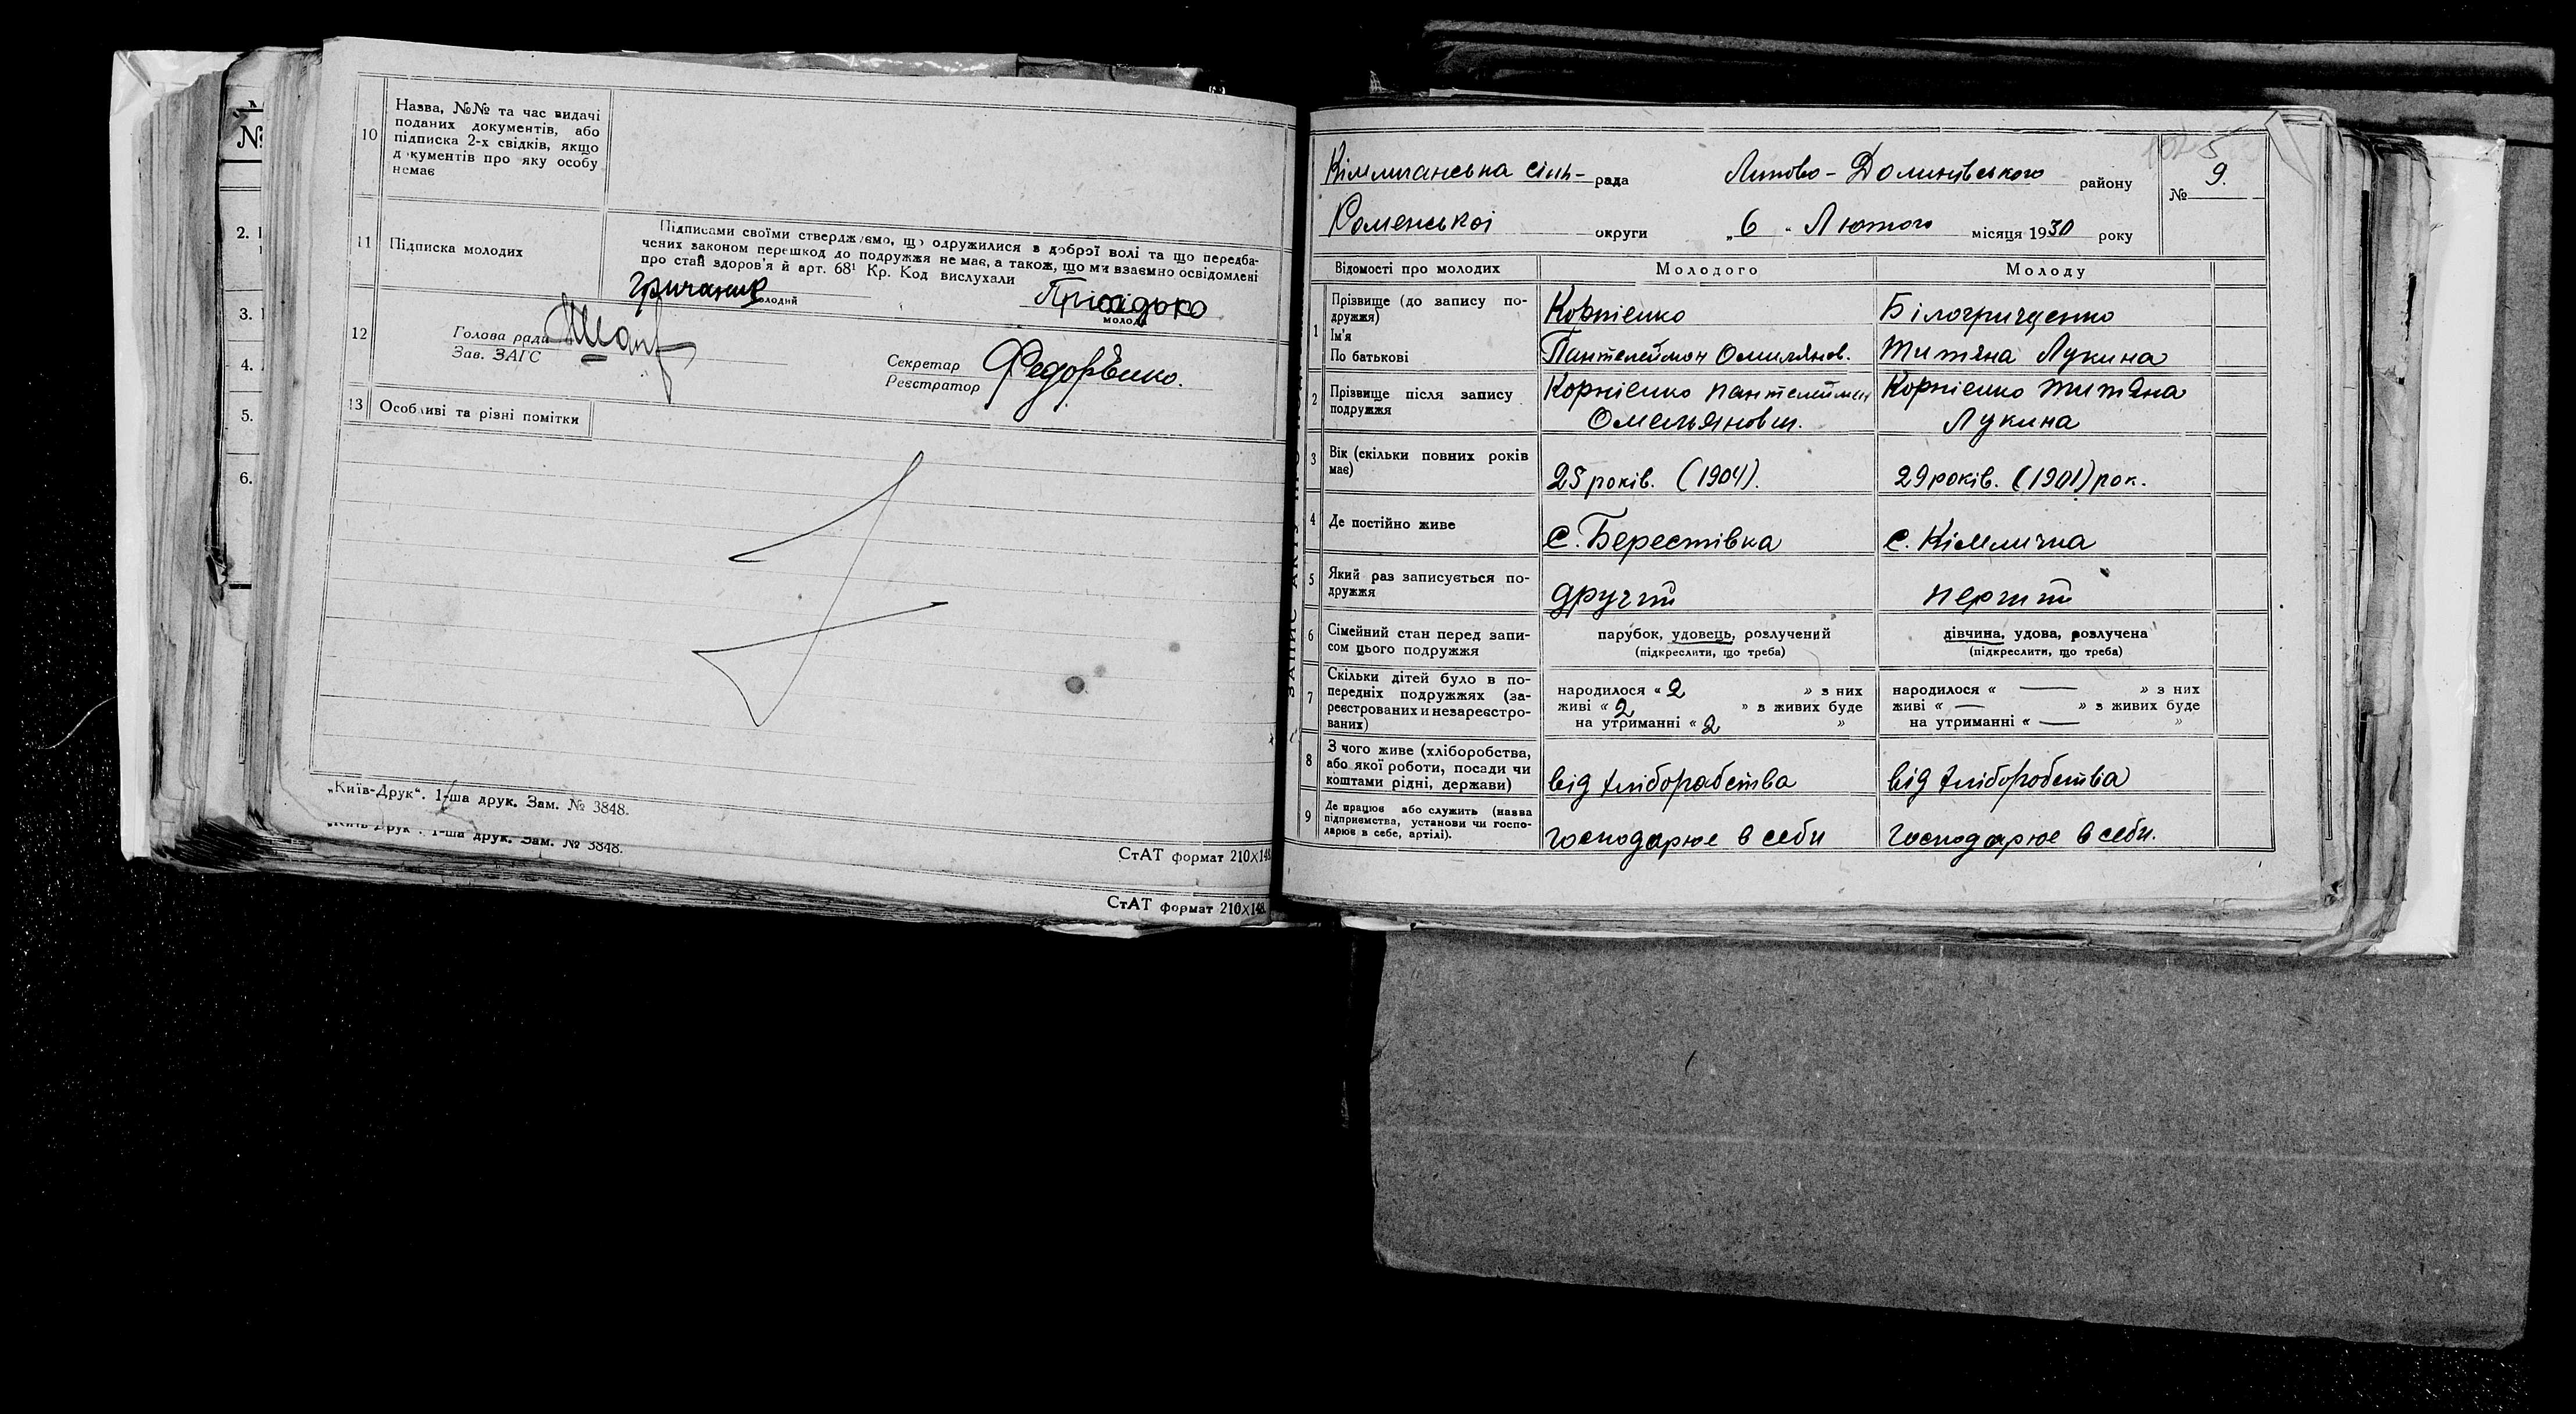 №
2.
3.
4.
5.
6.
10
Назва, №№ та час видачі
поданих документів, або
підписка 2-х свідків, якщо
д кументів про яку особу
немає
11
Підписка молодих
Підписами своїми стверджуємо, що одружилися з доброї волі та що передба-
чених законом перешкод до подружжя немає, а також, що ми взаємно освідомлені
про стан здоров'я й арт. 68¹ Кр. Код вислухали
молодий
молода
12
Голова ради
Зав. ЗАГС
Секретар
Реєстратор
Федорѣнко.
13 Особливі та різні помітки
„Київ-Друк“. 1-ша друк. Зам. № 3848.
„Київ-Друк“. 1-ша друк. Зам. № 3848.
СтАТ формат 210×148
СтАТ формат 210×148
рада
Липово-Долинівського району
№ 9.
Роменської округи „6“ Лютого місяця 1930 року
Відомості про молодих
Молодого
Молоду
1
Прізвище (до запису по-
дружжя)
Ім'я
По батькові
Корнієнко
Пантелеймон Омилянов.
Білогрищенко
Титяна Лукина
2
Прізвище після запису
подружжя
Корнієнко Пантелеймон
Омельянович.
Корнієнко Титяна
Лукина
3
Вік (скільки повних років
має)
25 років. (1904).
29 років. (1901) рок.
4
Де постійно живе
с. Берестівка
с. Кімличка
5
Який раз записується по-
дружжя
другий
перший
6
Сімейний стан перед запи-
сом цього подружжя
парубок, удовець, розлучений
(підкреслити, що треба)
дівчина, удова, розлучена
(підкреслити, що треба)
7
Скільки дітей було в по-
передніх подружжях (за-
реєстрованих и незареєстро-
ваних)
народилося « 2 » з них
живі « 2 » з живих буде
на утриманні « 2 »
народилося « — » з них
живі « — » з живих буде
на утриманні « — »
8
З чого живе (хліборобства,
або якої роботи, посади чи
коштами рідні, держави)
від хліборобства
від хліборобства
9
Де працює або служить (назва
підприємства, установи чи госпо-
дарює в себе, артілі).
господарює в себи
господарює в себи.